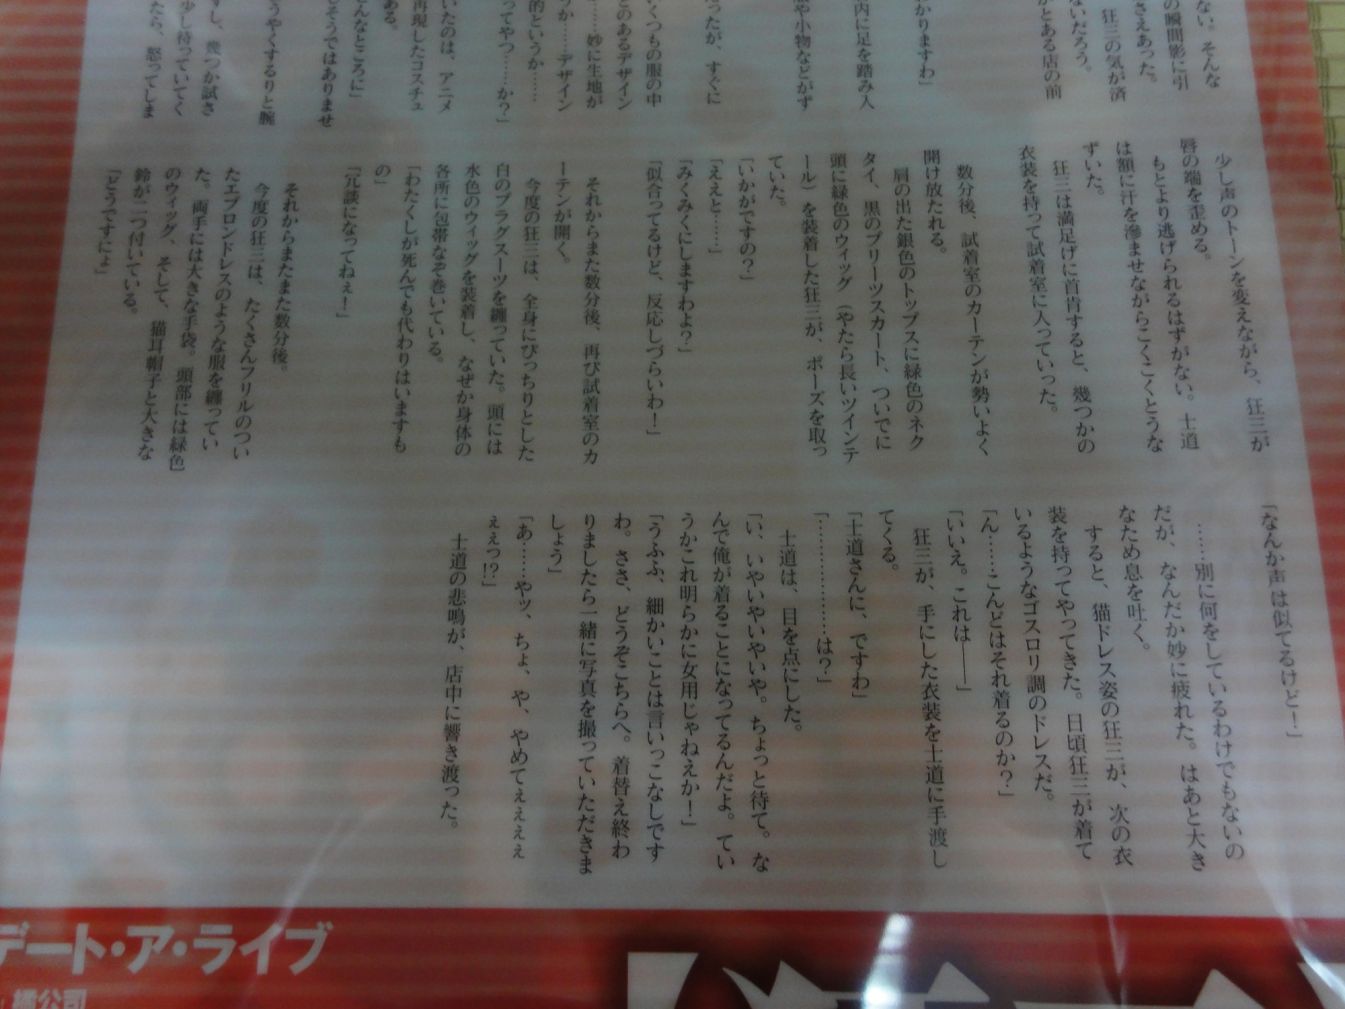 ない。そんな
の瞬間影に引
さえあった。
狂三の気が済
ないだろう。
がとある店の前
かりますわ」
内に足を踏み入
や小物などがず
ったが、すぐに
いくつもの服の中
とのあるデザイン
……妙に生地が
うか……デザイン
的というか……
ってやつ……か？」
いたのは、アニメ
再現したコスチュ
ある。
んなところに」
そうではありませ
うやくするりと腕
すし、幾つか試さ
少し待っていてく
たら、怒ってしま
少し声のトーンを変えながら、狂三が
唇の端を歪める。
もとより逃げられるはずがない。士道
は額に汗を滲ませながらこくこくとうな
ずいた。
狂三は満足げに首肯すると、幾つかの
衣装を持って試着室に入っていった。
数分後、試着室のカーテンが勢いよく
開け放たれる。
肩の出た銀色のトップスに緑色のネク
タイ、黒のプリーツスカート、ついでに
頭に緑色のウィッグ（やたら長いツインテ
ール）を装着した狂三が、ポーズを取っ
ていた。
「いかがですの？」
「ええと……」
「みくみくにしますわよ？」
「似合ってるけど、反応しづらいわ！」
それからまた数分後、再び試着室のカ
ーテンが開く。
今度の狂三は、全身にぴっちりとした
白のプラグスーツを纏っていた。頭には
水色のウィッグを装着し、なぜか身体の
各所に包帯なぞ巻いている。
「わたくしが死んでも代わりはいますも
の」
「冗談になってねぇ！」
それからまたまた数分後。
今度の狂三は、たくさんフリルのつい
たエプロンドレスのような服を纏ってい
た。両手には大きな手袋。頭部には緑色
のウィッグ、そして、猫耳帽子と大きな
鈴が二つ付いている。
「どうですにょ」
「なんか声は似てるけど！」
……別に何をしているわけでもないの
だが、なんだか妙に疲れた。はあと大き
なため息を吐く。
すると、猫ドレス姿の狂三が、次の衣
装を持ってやってきた。日頃狂三が着て
いるようなゴスロリ調のドレスだ。
「ん……こんどはそれ着るのか？」
「いいえ。これは――」
狂三が、手にした衣装を士道に手渡し
てくる。
「士道さんに、ですわ」
「……………は？」
士道は、目を点にした。
「い、いやいやいやいや。ちょっと待て。な
んで俺が着ることになってるんだよ。てい
うかこれ明らかに女用じゃねえか！」
「うふふ、細かいことは言いっこなしです
わ。ささ、どうぞこちらへ。着替え終わ
りましたら一緒に写真を撮っていただきま
しょう」
「あ……やッ、ちょ、や、やめてぇぇぇぇ
ぇぇっ!?」
士道の悲鳴が、店中に響き渡った。
デート・ア・ライブ
橘公司